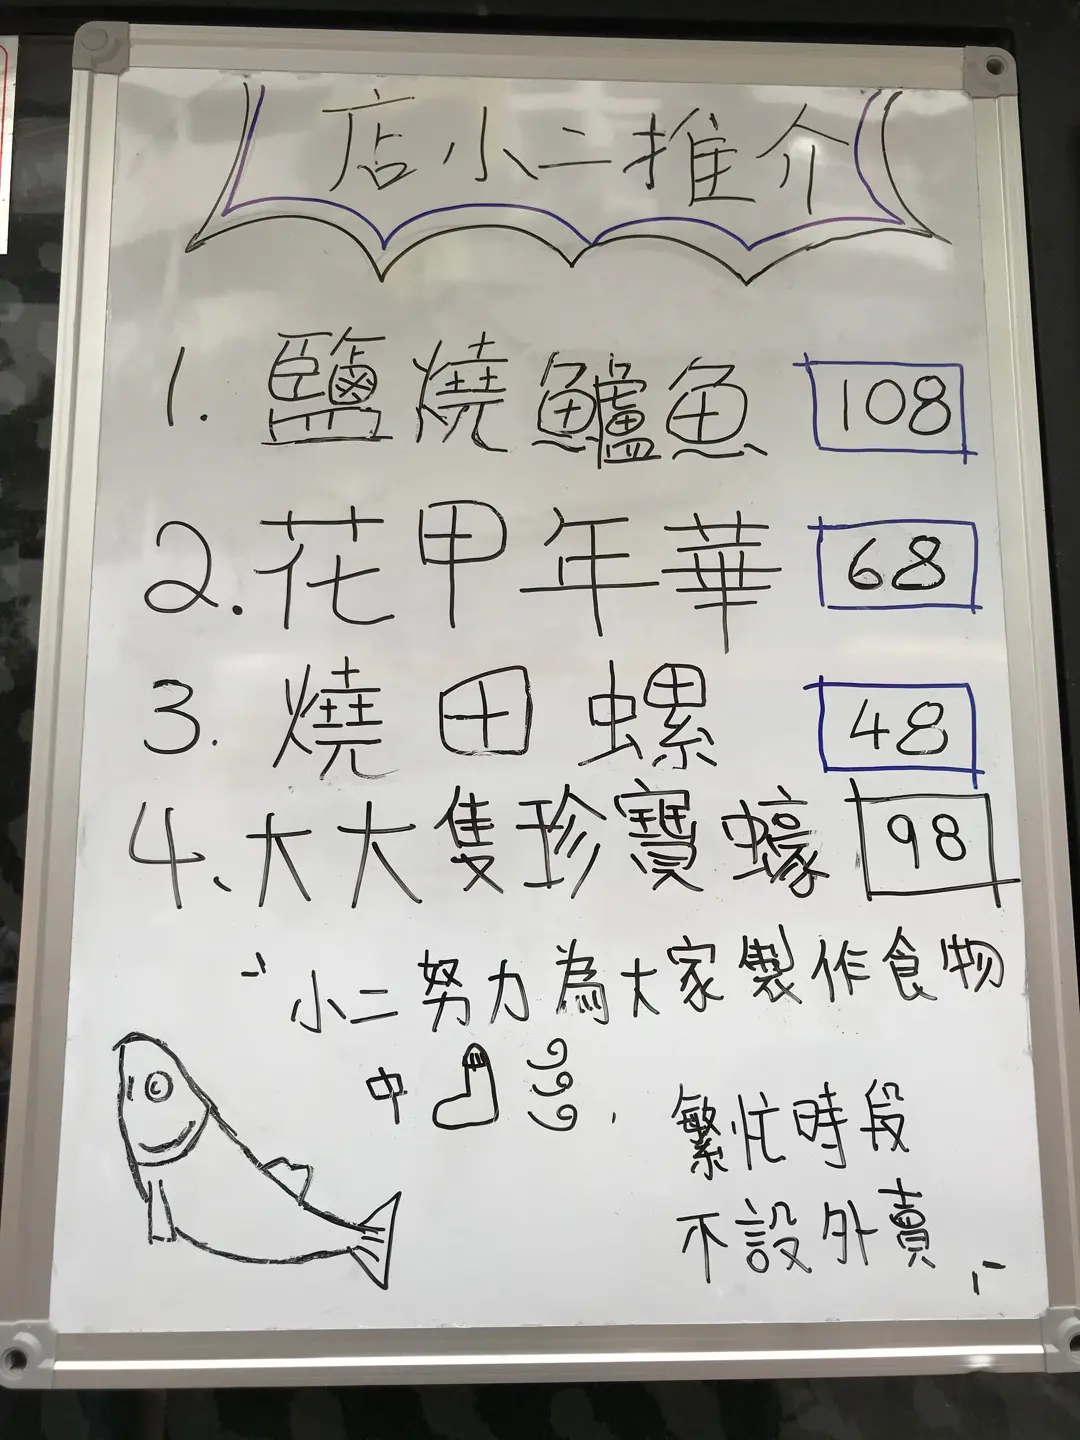 店小二推介
1. 鹽燒鱸魚 108
2. 花甲年華 68
3. 燒田螺 48
4、大大隻珍寶蠔 98
小二努力為大家製作食物
中
繁忙時段
不設外賣